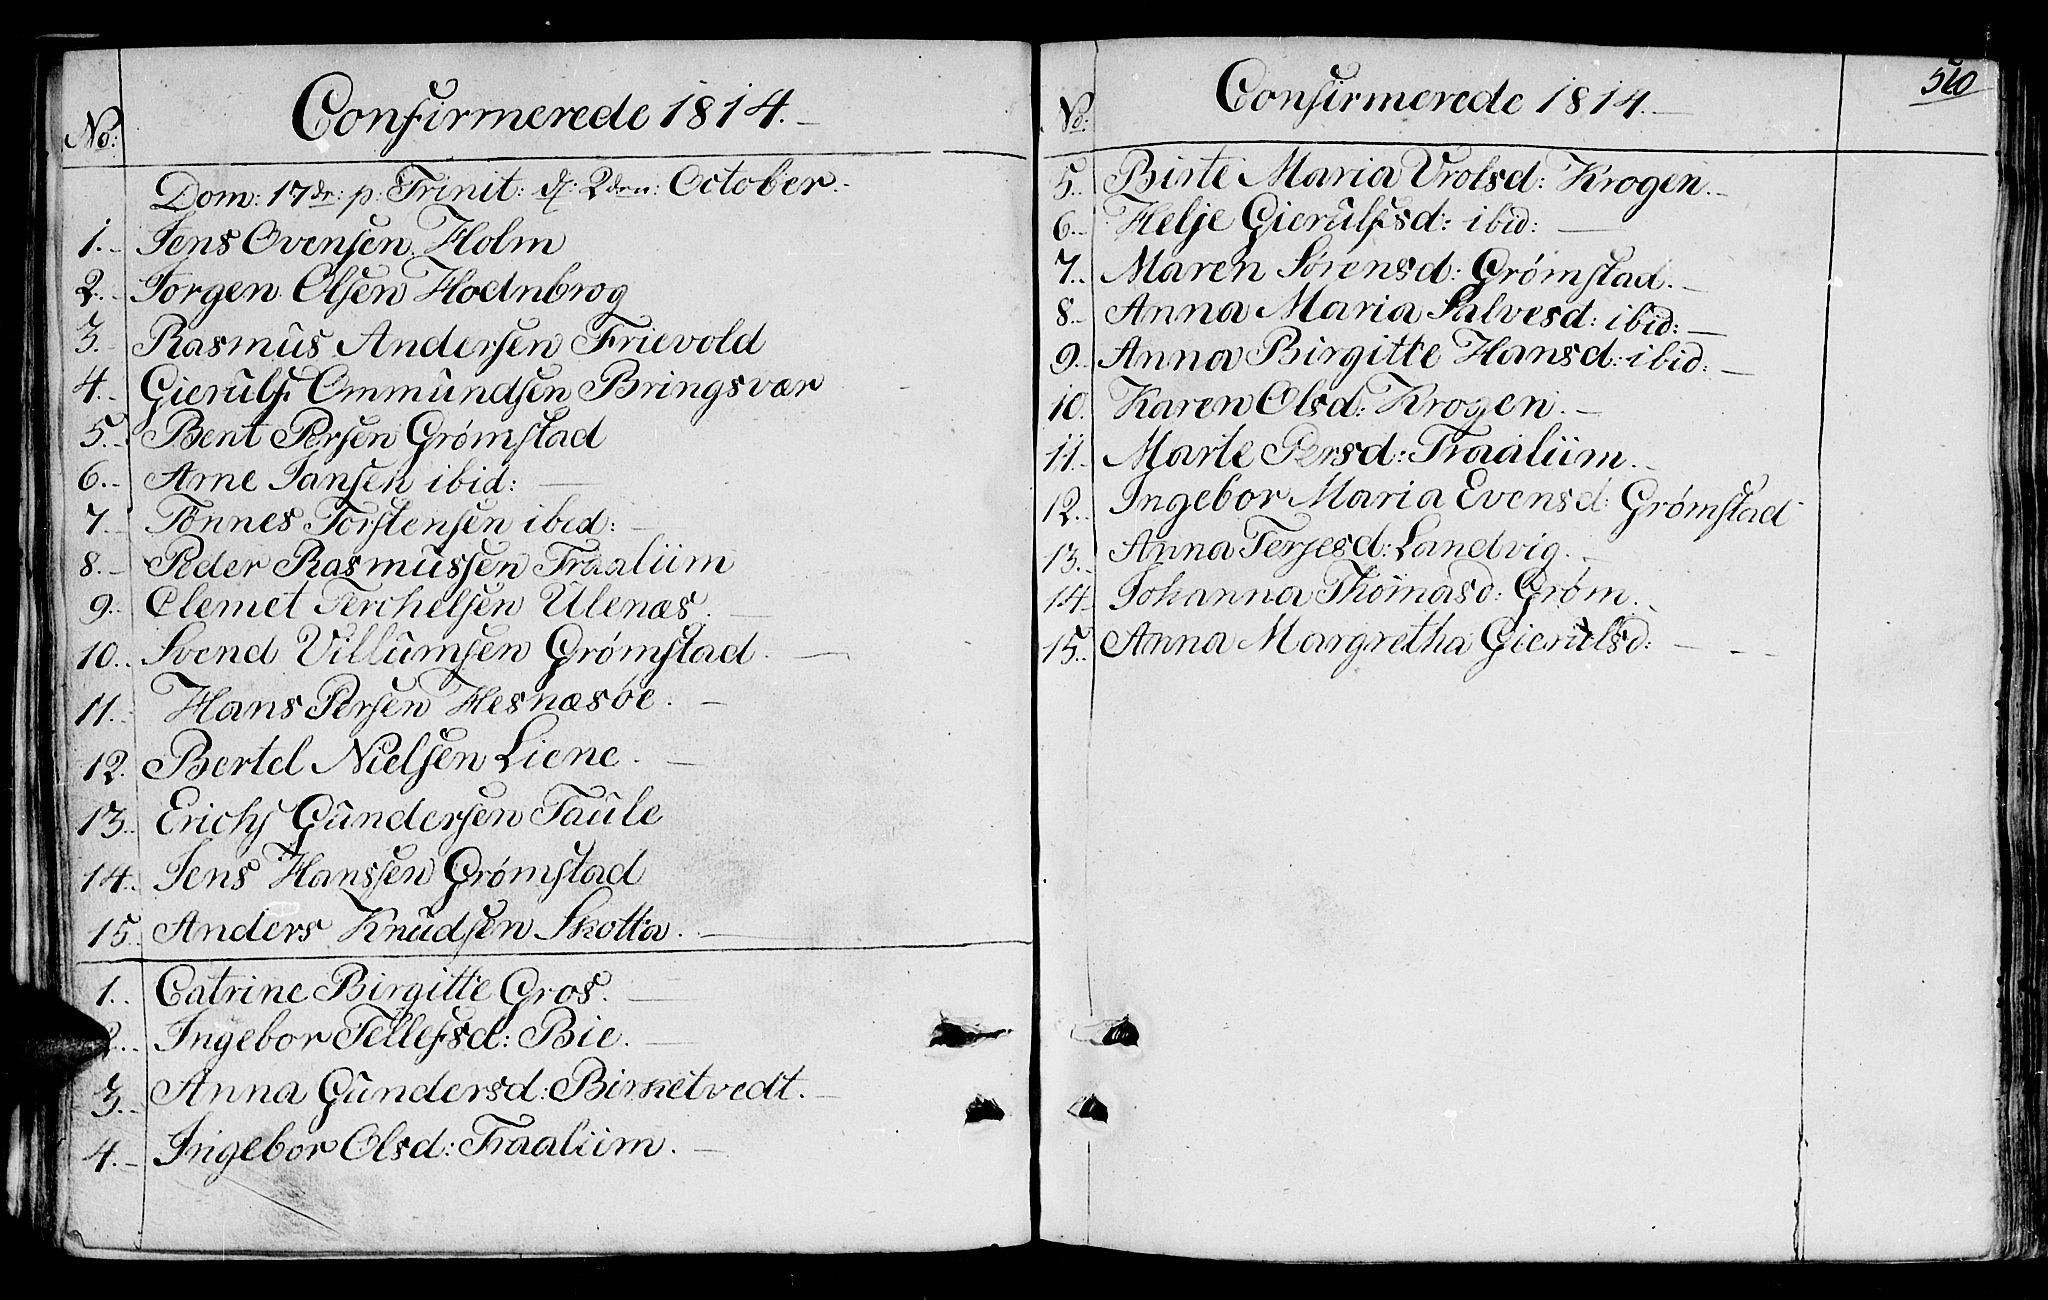 No:
Confirmerede 1814.
Dom: 17de: p. Trinit: d: 2den: October.
1. Jens Ovensen Holm
2. Jorgen Olsen Hodnbrog
3. Rasmus Andersen Frievold
4. Gierulf Ommundsen Bringsvær
5. Bent Persen Grømstad
6. Arne Jansen ibid:
7. Tønnes Torstensen ibid:
8. Peder Rasmussen Traalüm
9. Clemet Terchelsen Ulenæs.
10. Svend Villumsen Grømstad
11. Hans Persen Hesnæsøe.
12. Bertel Nielsen Liene.
13. Erichs Gundersen Taule
14. Jens Hanssen Grømstad
15. Anders Knudsen Skotta.
1. Catrine Birgitte Gros.
2. Ingebor Tellefsd: Bie.
3. Anna Gundersd: Birketvedt.
4. Ingebor Olsd: Traalüm.
No:
Confirmerede 1814.
510
5. Birte Maria Vrolsd: Krogen.
6. Helje Gierulfsd: ibid:
7. Maren Sørensd: Grømstad.
8. Anna Maria Salvesd: ibid:
9. Anna Birgitte Hansd: ibid:
10. Karen Olsd: Krogen.
11. Marte Persd: Traalüm.
12. Ingebor Maria Evensd: Grømstad
13. Anna Terjesd: Landvig.
14. Johanna Thomasd: Grøm.
15. Anna Margretha Gierulsd: